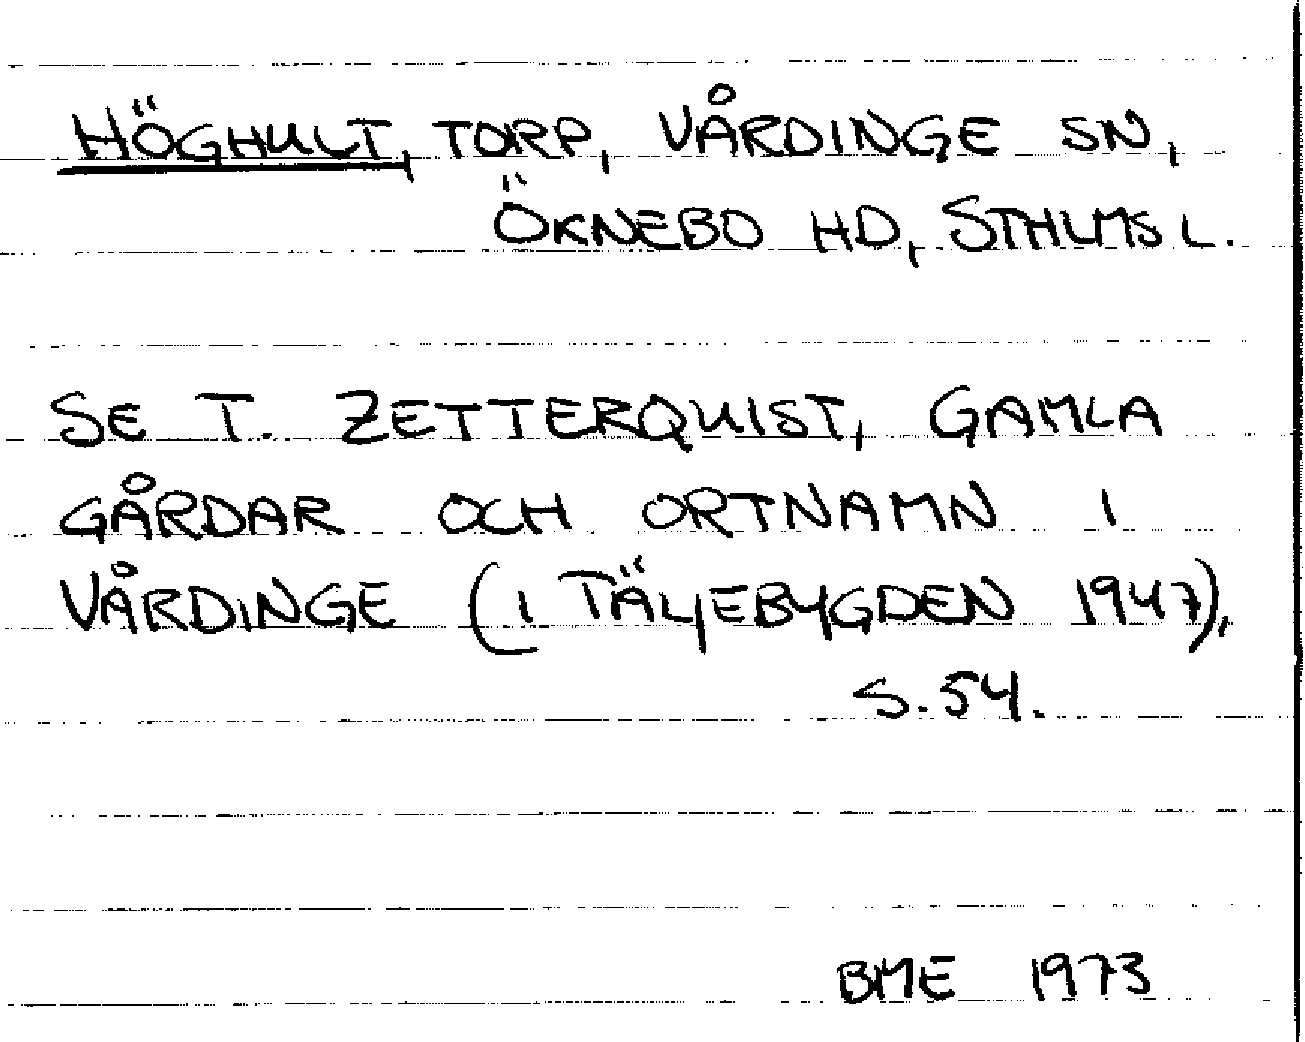 HÖGHULT, TORP, VÅRDINGE SN,
ÖKNEBO HD, STHLMS L.
SE T. ZETTERQUIST, GAMLA
GÅRDAR OCH ORTNAMN I
VÅRDINGE (I TÄLJEBYGDEN 1947),
S. 54.
BME 1973